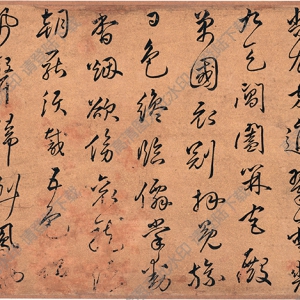 尚衣方進翠雲
九天閶闔開宮殿
萬國衣冠拜冕旒
日色纔臨僊掌動
香烟欲傍袞龍
朝罷須裁五色
珮聲歸到鳳